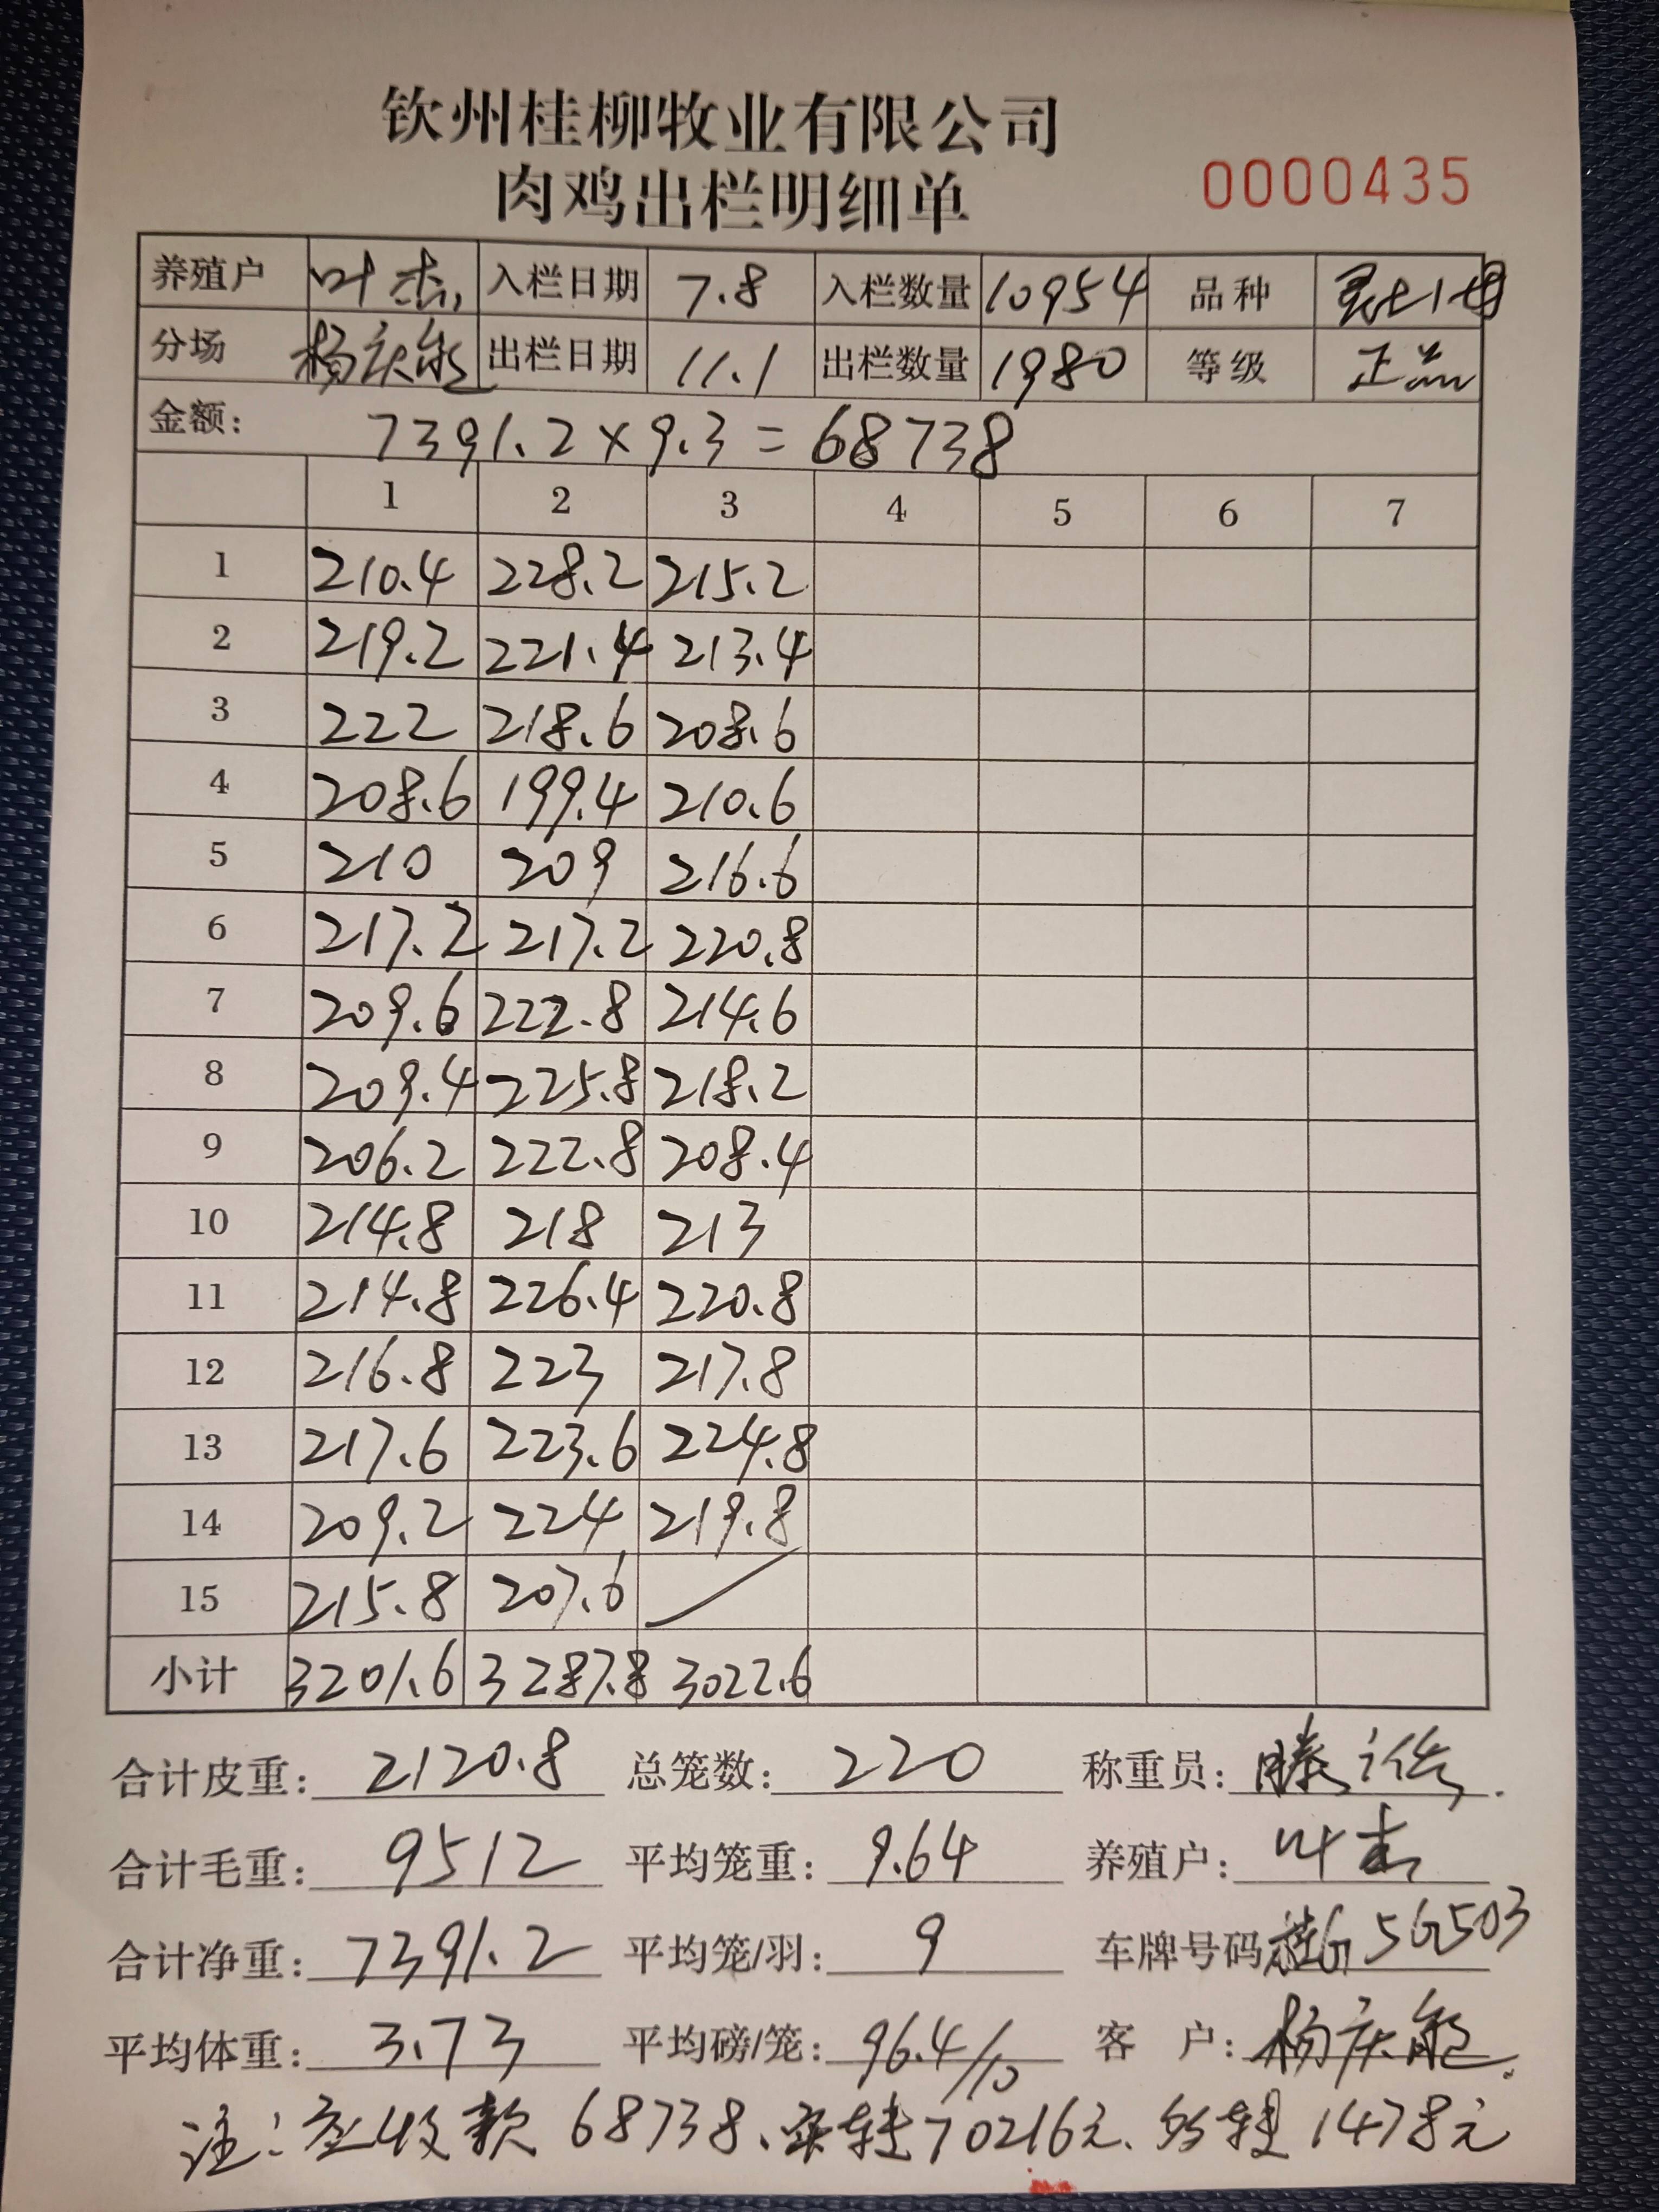 钦州桂柳牧业有限公司
肉鸡出栏明细单 0000435
养殖户 叶杰 入栏日期 7.8 入栏数量 10954 品种
分场 杨庆能 出栏日期 11.1 出栏数量 1980 等级 正品
金额: 7391.2×9.3=68738
1 2 3 4 5 6 7
1 210.4 228.2 215.2
2 219.2 221.4 213.4
3 222 218.6 208.6
4 208.6 199.4 210.6
5 210 209 216.6
6 217.2 217.2 220.8
7 209.6 222.8 214.6
8 209.4 225.8 218.2
9 206.2 222.8 208.4
10 214.8 218 213
11 214.8 226.4 220.8
12 216.8 223 217.8
13 217.6 223.6 224.8
14 209.2 224 219.8
15 215.8 207.6
小计 3201.6 3287.8 3022.6
合计皮重: 2120.8 总笼数: 220 称重员: 滕
合计毛重: 9512 平均笼重: 9.64 养殖户: 叶杰
合计净重: 7391.2 平均笼/羽: 9 车牌号码 桂G5G503
平均体重: 3.73 平均磅/笼: 96.4/10 客 户: 杨庆能
注: 应收款 68738、实转70216元、多转1478元